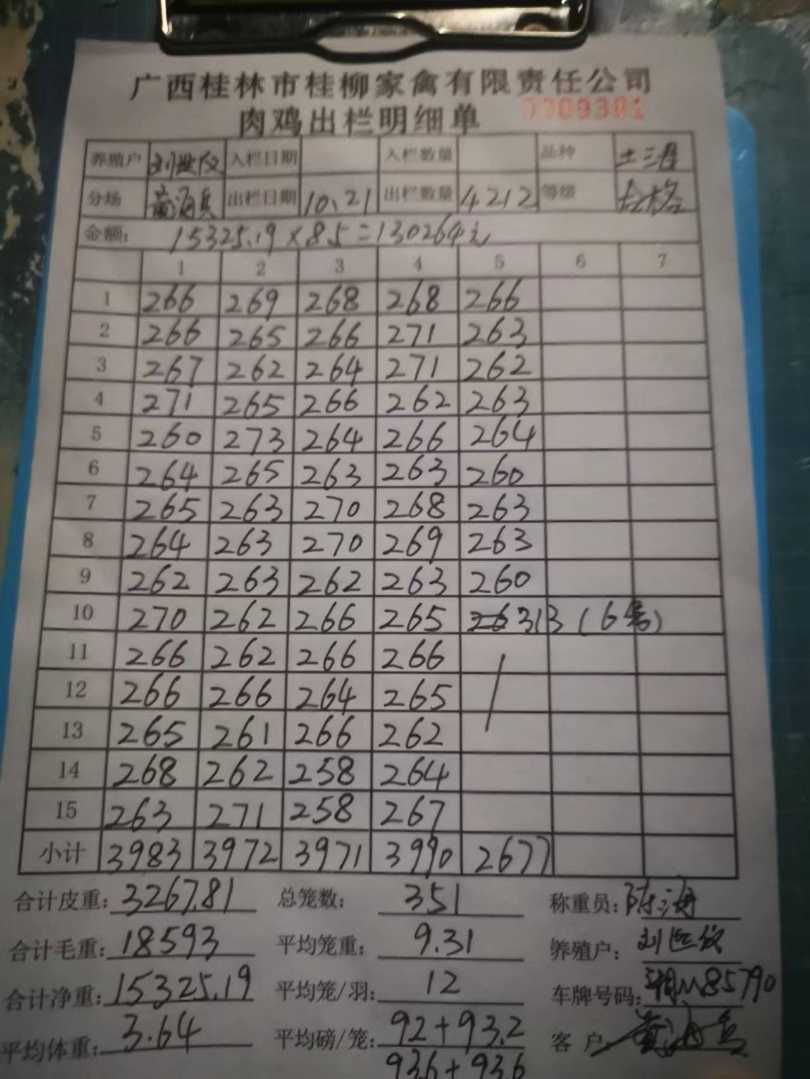 广西桂林市桂柳家禽有限责任公司
肉鸡出栏明细单
养殖户 入栏日期 入栏数量 品种 土三
分场 出栏日期 10.21 出栏数量 4212 等级 合格
金额: 15325.19×8.5=130264元
1 2 3 4 5 6 7
1 266 269 268 268 266
2 266 265 266 271 263
3 267 262 264 271 262
4 271 265 266 262 263
5 260 273 264 266 264
6 264 265 263 263 260
7 265 263 270 268 263
8 264 263 270 269 263
9 262 263 262 263 260
10 270 262 266 265 313 (6笼)
11 266 262 266 266
12 266 266 264 265
13 265 261 266 262
14 268 262 258 264
15 263 271 258 267
小计 3983 3972 3971 3990 2677
合计皮重: 3267.81 总笼数: 351 称重员:
合计毛重: 18593 平均笼重: 9.31 养殖户:
合计净重: 15325.19 平均笼/羽: 12 车牌号码: 85790
平均体重: 3.64 平均磅/笼: 92+93.2 客户
93.6+93.6